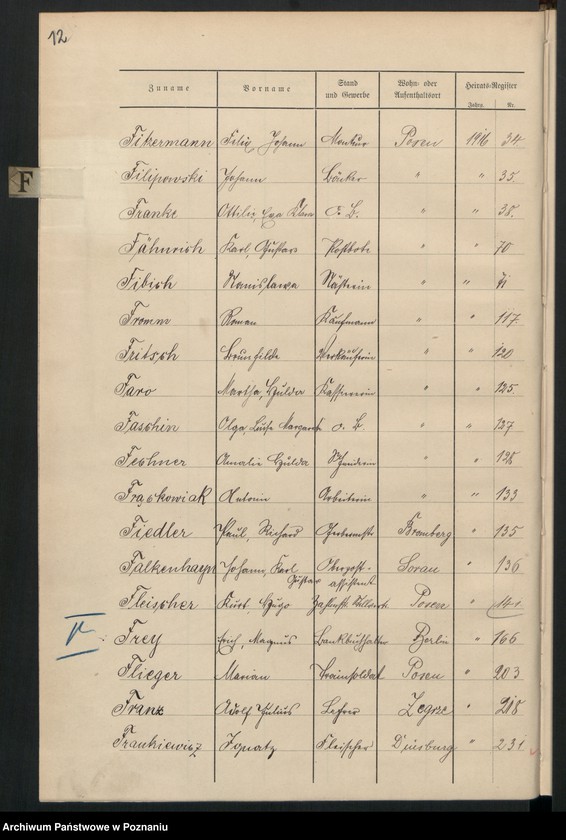 12
Zuname Vorname Stand und Gewerbe Wohn- oder Aufenthaltsort Heirats-Register
Jahrg. Nr.
F
Fikermann Felix Johann Monteur Posen 1916 34
Filipowski Johann Bäcker " " 35
Franke Ottilie, Eva Klara o. B. " " 38
Fähnrich Karl, Gustav Postbote " " 70
Fibich Stanislawa Näherin " " 71
Fromm Roman Kaufmann " " 117
Fritsch Brunhilde Verkäuferin " " 120
Faro Martha, Hulda Kassiererin " " 125
Faschin Olga, Luise Margareth o. B. " " 127
Feshner Amalie Hulda " " 128
Frąckowiak Antonie Arbeiterin " " 133
Fiedler Paul, Richard Bromberg " 135
Falkenhayn Johann, Karl Gustav Oberpost-assistent Sorau " 136
Fleischer Kurt, Hugo Posen "
Frey Erich, Magnus Bankbuchhalter Berlin " 166
Flieger Marian Trainsoldat Posen " 203
Franz Adolf Julius Lehrer Zegrze " 218
Frankiewicz Ignatz Fleischer Duisburg " 231
Archiwum Państwowe w Poznaniu